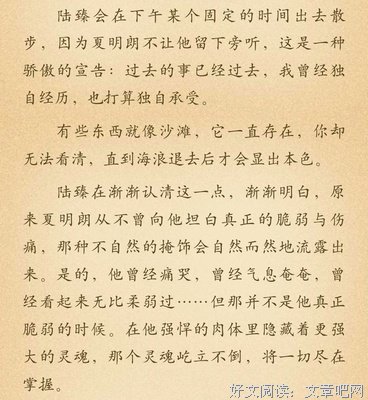 陆臻会在下午某个固定的时间出去散
步，因为夏明朗不让他留下旁听，这是一种
骄傲的宣告：过去的事已经过去，我曾经独
自经历，也打算独自承受。
有些东西就像沙滩，它一直存在，你却
无法看清，直到海浪退去后才会显出本色。
陆臻在渐渐认清这一点，渐渐明白，原
来夏明朗从不曾向他坦白真正的脆弱与伤
痛，那种不自然的掩饰会自然而然地流露出
来。是的，他曾经痛哭，曾经气息奄奄，曾
经看起来无比柔弱过……但那并不是他真正
脆弱的时候。在他强悍的肉体里隐藏着更强
大的灵魂，那个灵魂屹立不倒，将一切尽在
掌握。
好文阅读：文章吧网